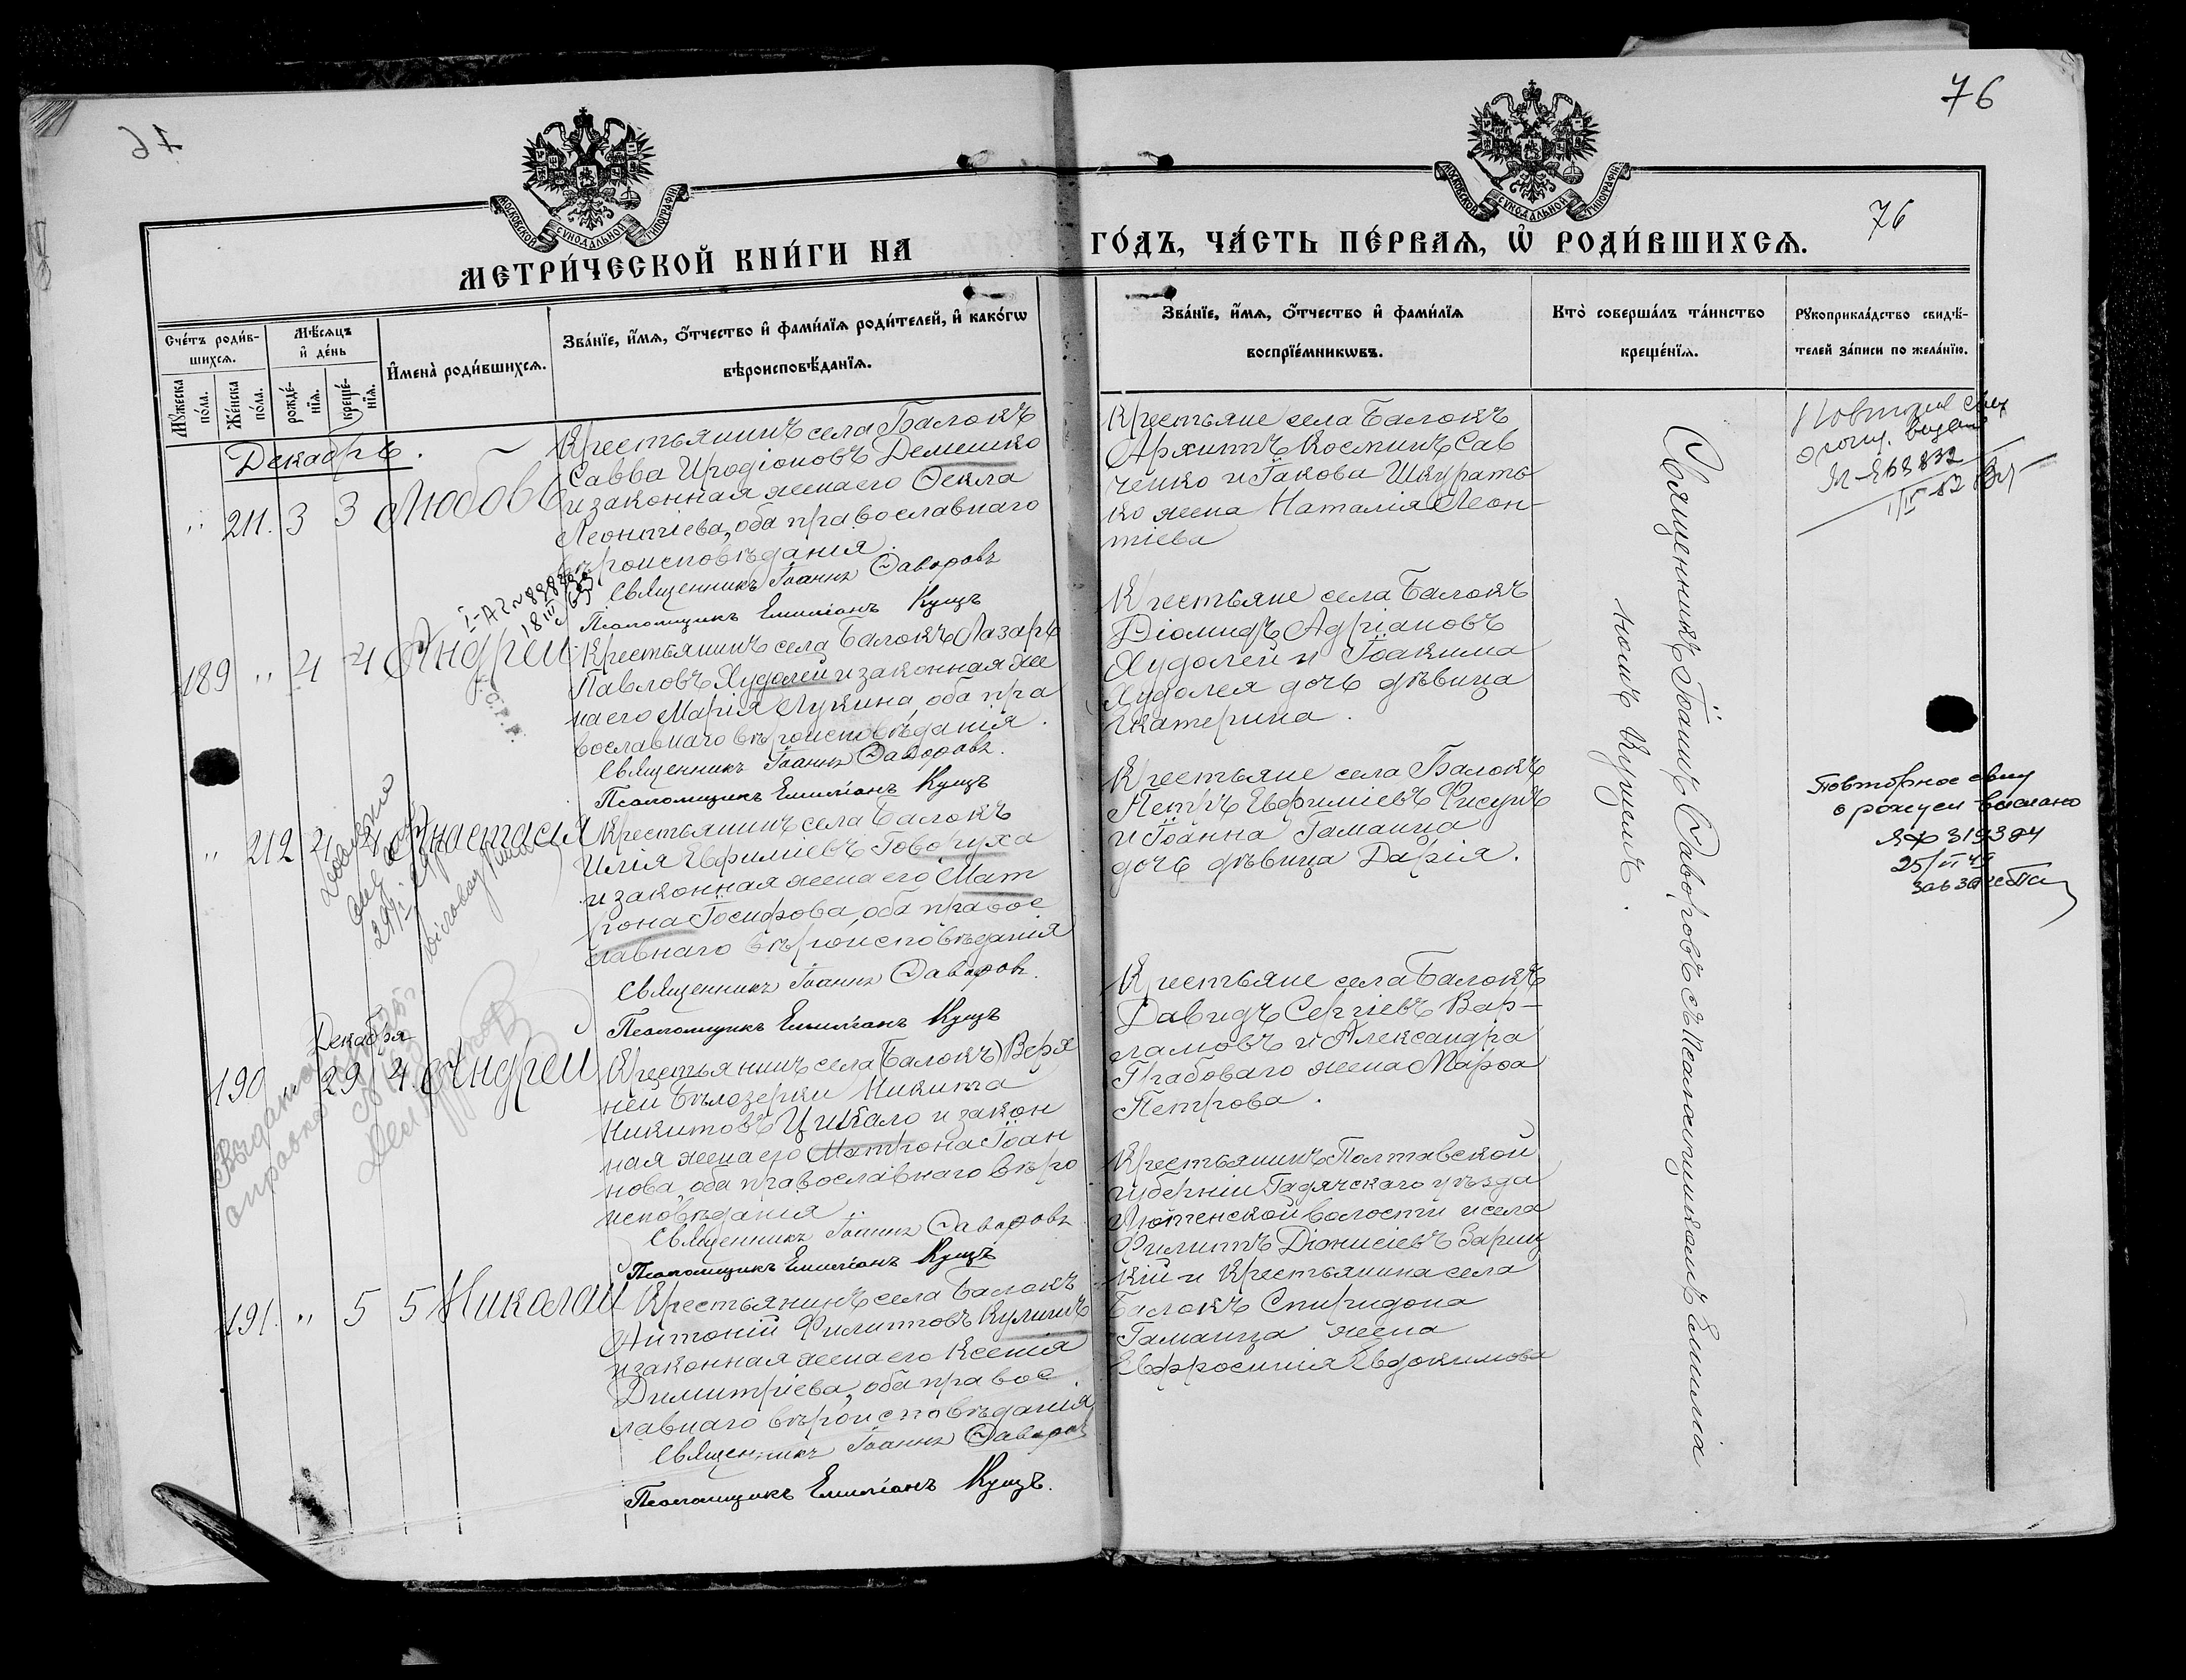 76
76
МОСКОВСКОЙ СѴНОДАЛЬНОЙ ТИПОГРАФІИ
МОСКОВСКОЙ СѴНОДАЛЬНОЙ ТИПОГРАФІИ
76
МЕТРИ́ЧЕСКОЙ КНИ́ГИ НА
ГО́ДЪ, ЧА́СТЬ ПЕ́РВАѦ, Ѡ҆ РОДИ́ВШИХСѦ.
Сче́тъ роди́в-
шихсѧ.
Мѣ́сѧцъ
и҆ де́нь
Мꙋ́жеска
по́ла.
Же́нска
по́ла.
рожде́-
нїѧ.
креще́-
нїѧ.
И҆мена̀ роди́вшихсѧ.
Зва́нїе, и҆́мѧ, ѻ҆́тчество и҆ фами́лїѧ роди́телей, и҆ како́гѡ
вѣроисповѣ́данїѧ.
Зва́нїе, и҆́мѧ, ѻ҆́тчество и҆ фами́лїѧ
воспрїе́мникѡвъ.
Кто̀ соверша́лъ та́инство
креще́нїѧ.
Рꙋкоприкла́дство свидѣ́-
телей за́писи по жела́нїю.
Декабрь.
211. 3 3 Любовь
Крестьянинъ села Балокъ
Савва Иродіоновъ Демешко
и законная жена его Ѳекла
Леонтіева, оба православнаго
вѣроисповѣданія.
Священникъ Іоаннъ Ѳаворовъ
Псаломщикъ Емиліанъ Кущъ
Крестьяне села Балокъ
Архипъ Косминъ Сав
ченко и Іакова Шкурать
ко жена Наталія Леон-
тіева
189 " 4 4 Андрей
Крестьянинъ села Балокъ Лазарь
Павловъ Худолей и законная же
на его Марія Лукина, оба пра
вославнаго вѣроисповѣданія.
Священникъ Іоаннъ Ѳаворовъ.
Псаломщикъ Емиліанъ Кущъ
Крестьяне села Балокъ
Діомидъ Адріановъ
Худолей и Іоакима
Худолея дочь дѣвица
Екатерина.
" 212 4 4 Анастасія
Крестьянинъ села Балокъ
Илія Евфиміевъ Говоруха
и законная жена его Мат
рона Іосифова, оба правос
лавнаго вѣроисповѣданія
Священникъ Іоаннъ Ѳаворовъ.
Псаломщикъ Емиліанъ Кущъ
Крестьяне села Балокъ
Петръ Евфиміевъ Фисунъ
и Іоанна Гаманца
дочь дѣвица Дарія.
Повторное свид
о рожден выслано
ЯФ 319384
25/VI 49
Декабря
190 29 4. Андрей
Крестьянинъ села (Балокъ) Верх
ней Бѣлозерки Никита
Никитовъ Цикало и закон
ная жена его Матрона Іоан
нова, оба православнаго вѣро
исповѣданія
Священникъ Іоаннъ Ѳаворовъ
Псаломщикъ Емиліанъ Кущъ
Крестьяне села Балокъ
Давидъ Сергіевъ Вар-
ламовъ и Александра
Грабоваго жена Марѳа
Петрова.
191. " 5 5 Николай
Крестьянинъ села Балокъ
Антоній Филипповъ Куличъ
и законная жена его Ксенія
Димитріева, оба правос
лавнаго вѣроисповѣданія
Священникъ Іоаннъ Ѳаворовъ
Псаломщикъ Емиліанъ Кущъ.
Крестьянинъ Полтавской
губерніи Гадячскаго уѣзда
Лютенской волости и села
Филиппъ Діонисіевъ Зариц
кій и Крестьянина села
Балокъ Спиридона
Гаманца жена
Евфросинія Евдокимова
Священникъ Іоаннъ Ѳаворовъ съ Псаломщикомъ Емиліа
номъ Кущемъ.